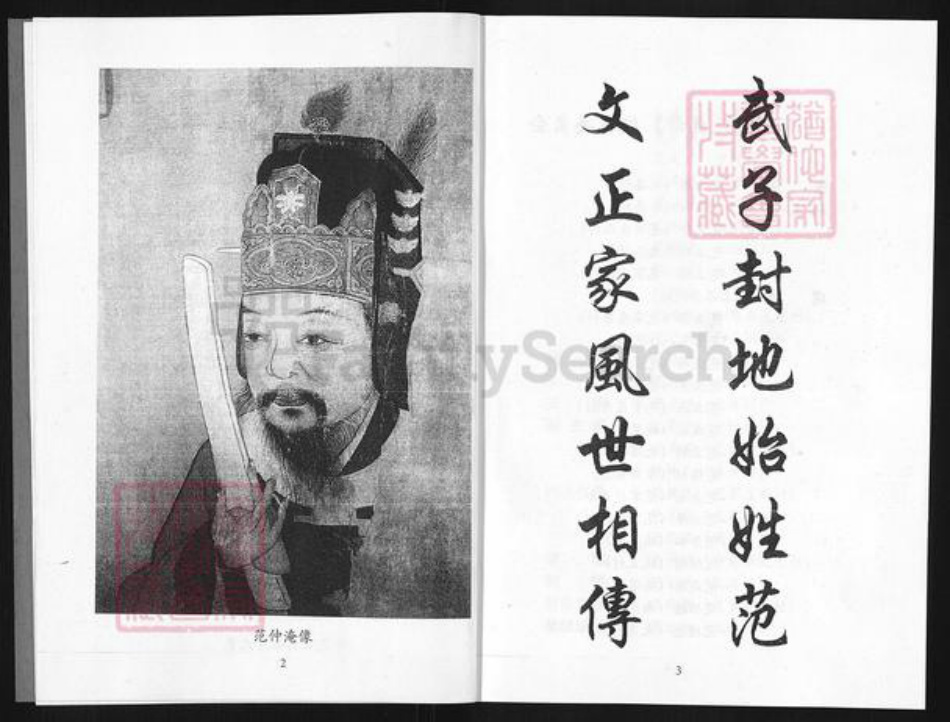 范仲淹像
2
武子封地始姓范
文正家風世相傳
3
FamilySearch